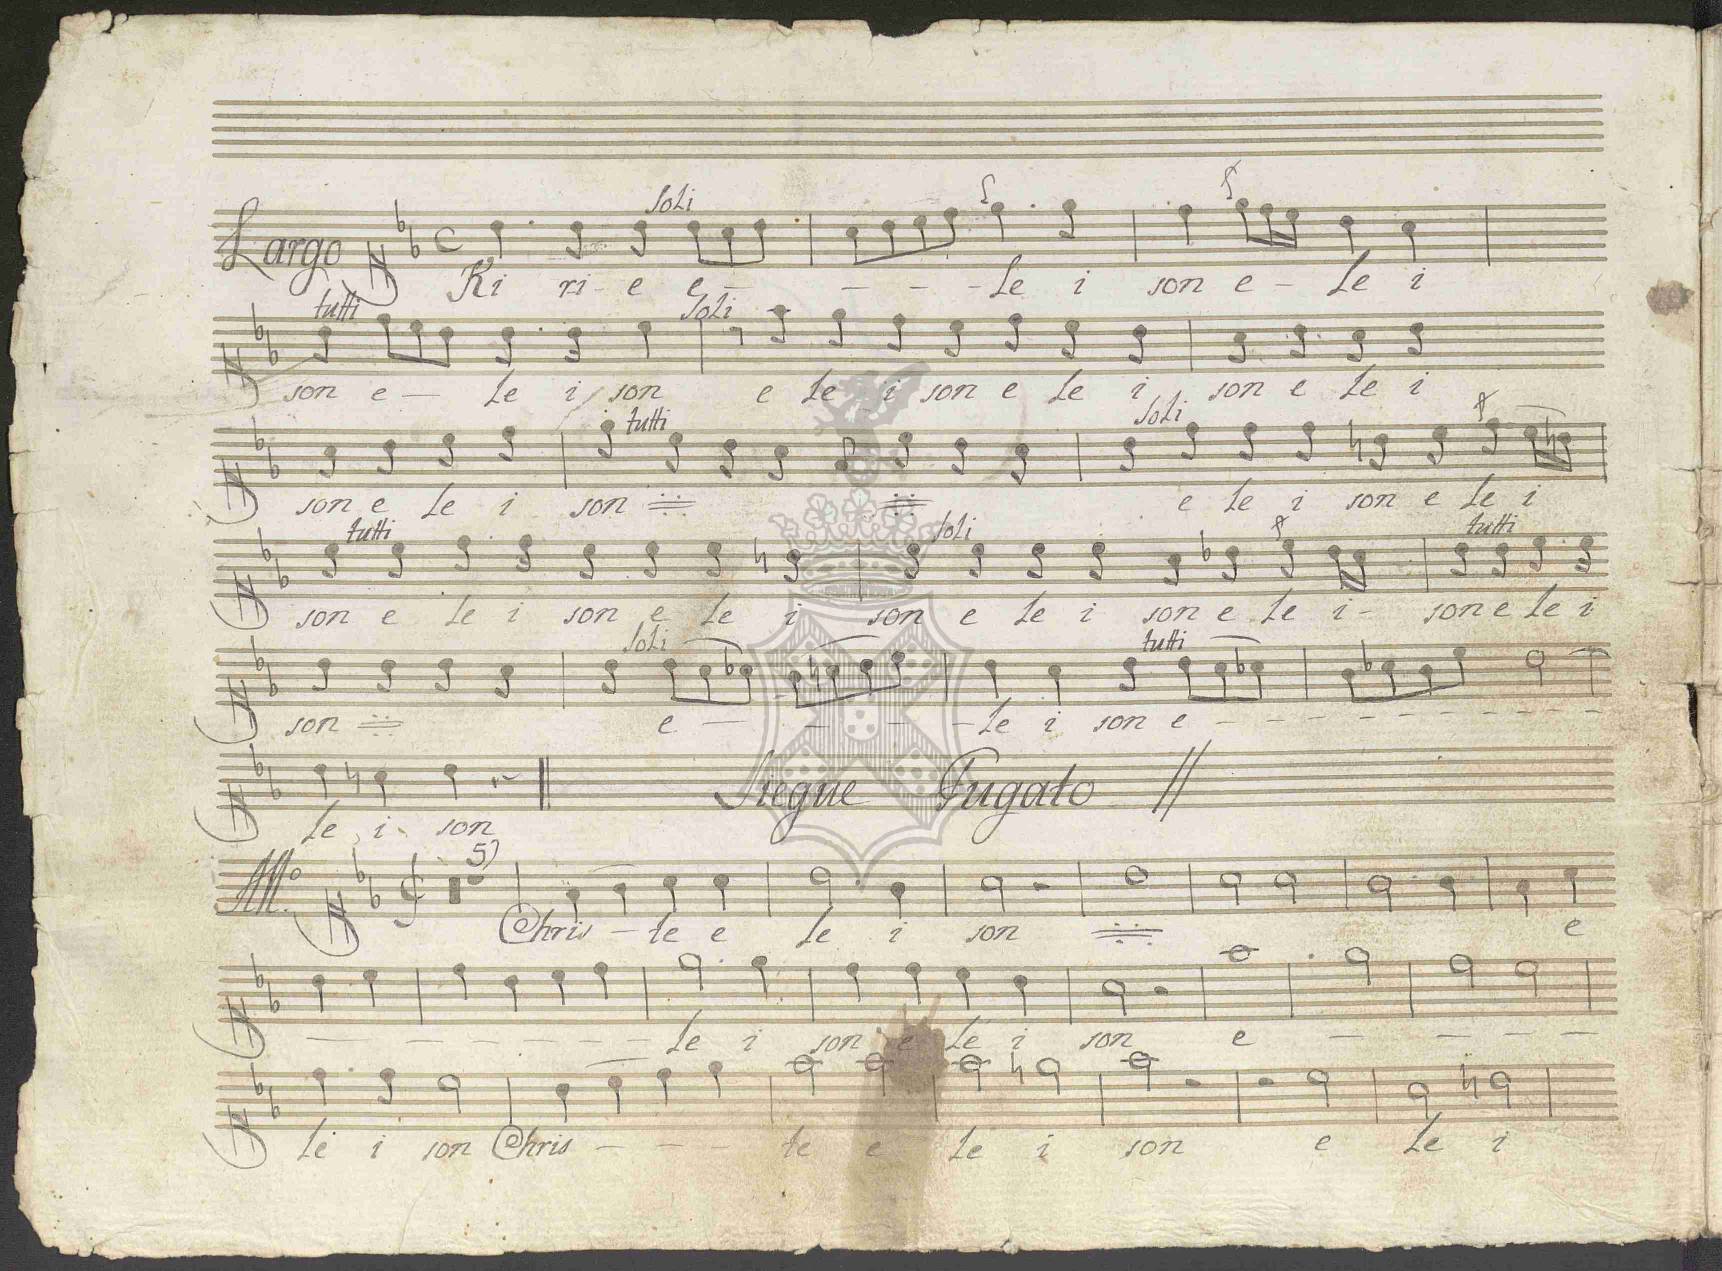 soli
Largo
Ki ri - e e - - - - le i son e - le i
tutti soli
son e - le i son e le i son e le i son e le i
tutti soli
son e le i son e le i son e le i
tutti soli tutti
son e le i son e le i son e le i son e le i - son e le i
soli tutti
son e - - - - le i son e - - - - - - - - -
Siegue Fugato //
le i son
All.º 5)
Chris - te e le i son e
- - - - - - - le i son e le i son e - - - -
le i son Chris - - te e le i son e le i